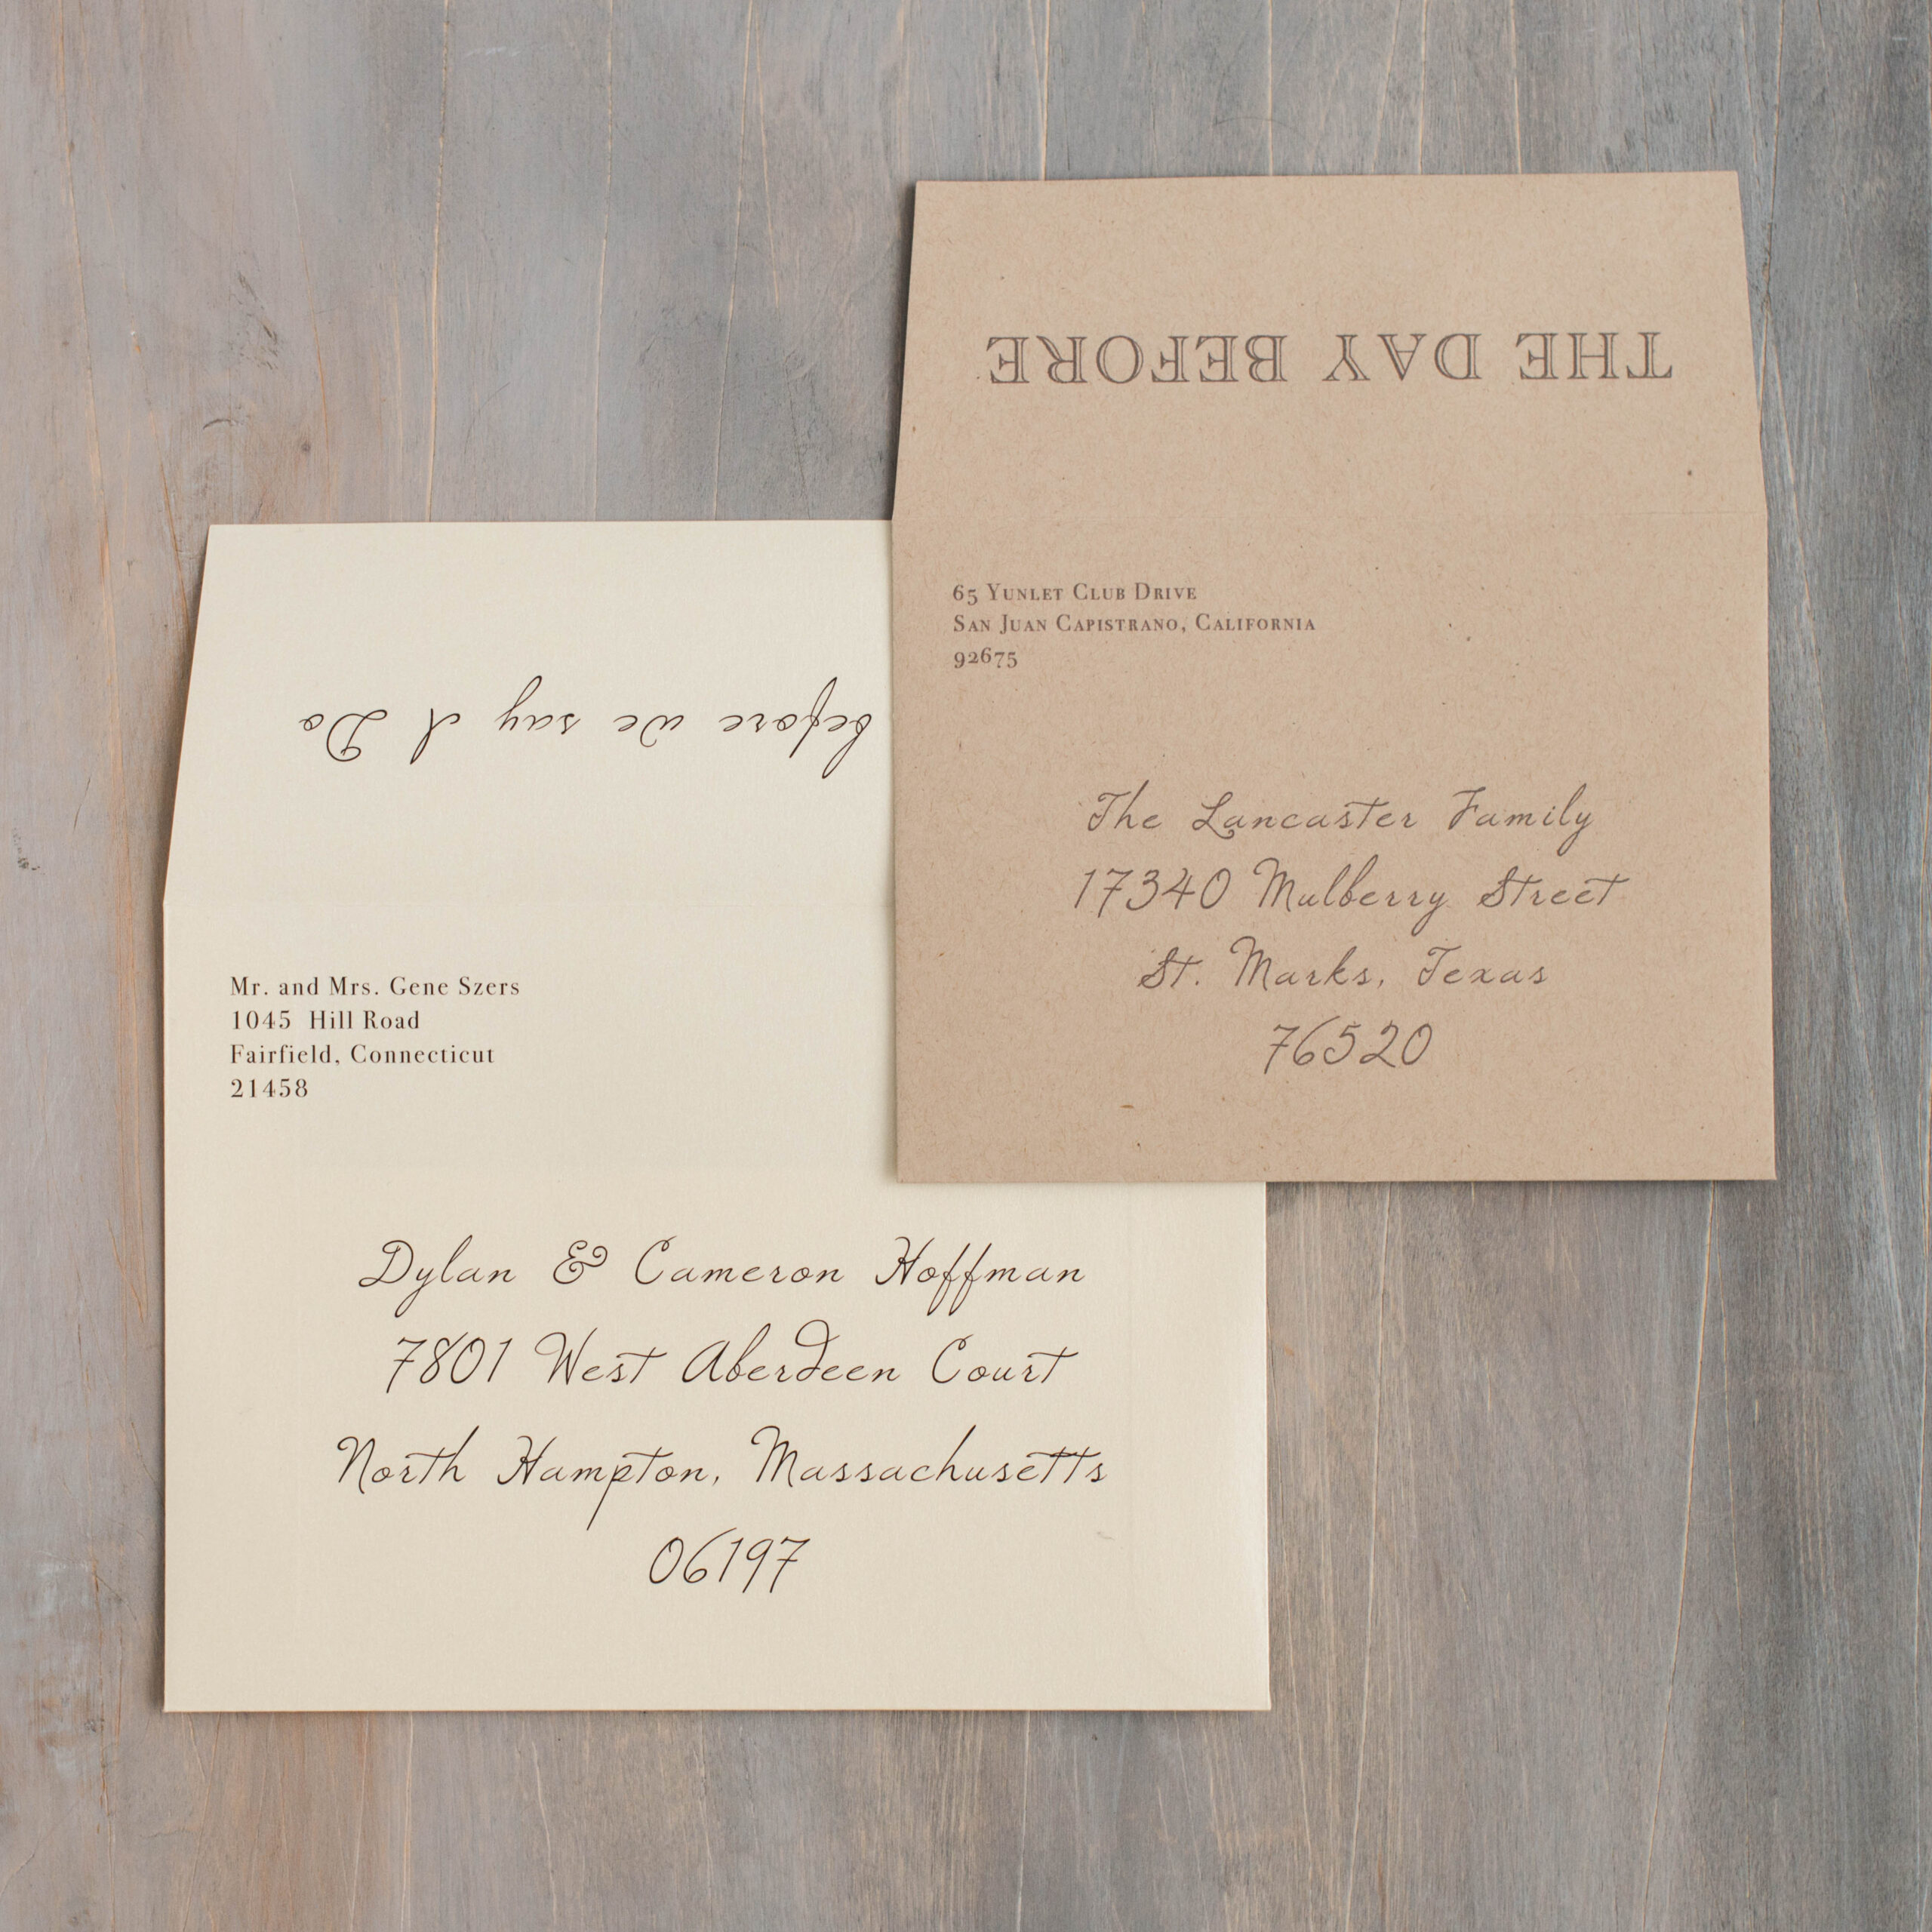 before we say I Do
Mr. and Mrs. Gene Szers
1045 Hill Road
Fairfield, Connecticut
21458
Dylan & Cameron Hoffman
7801 West Aberdeen Court
North Hampton, Massachusetts
06197
THE DAY BEFORE
65 Yunlet Club Drive
San Juan Capistrano, California
92675
The Lancaster Family
17340 Mulberry Street
St. Marks, Texas
76520